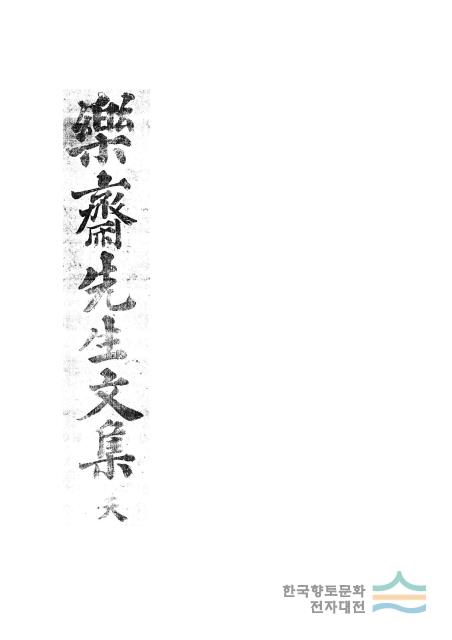 樂齋先生文集 天
한국향토문화
전자대전